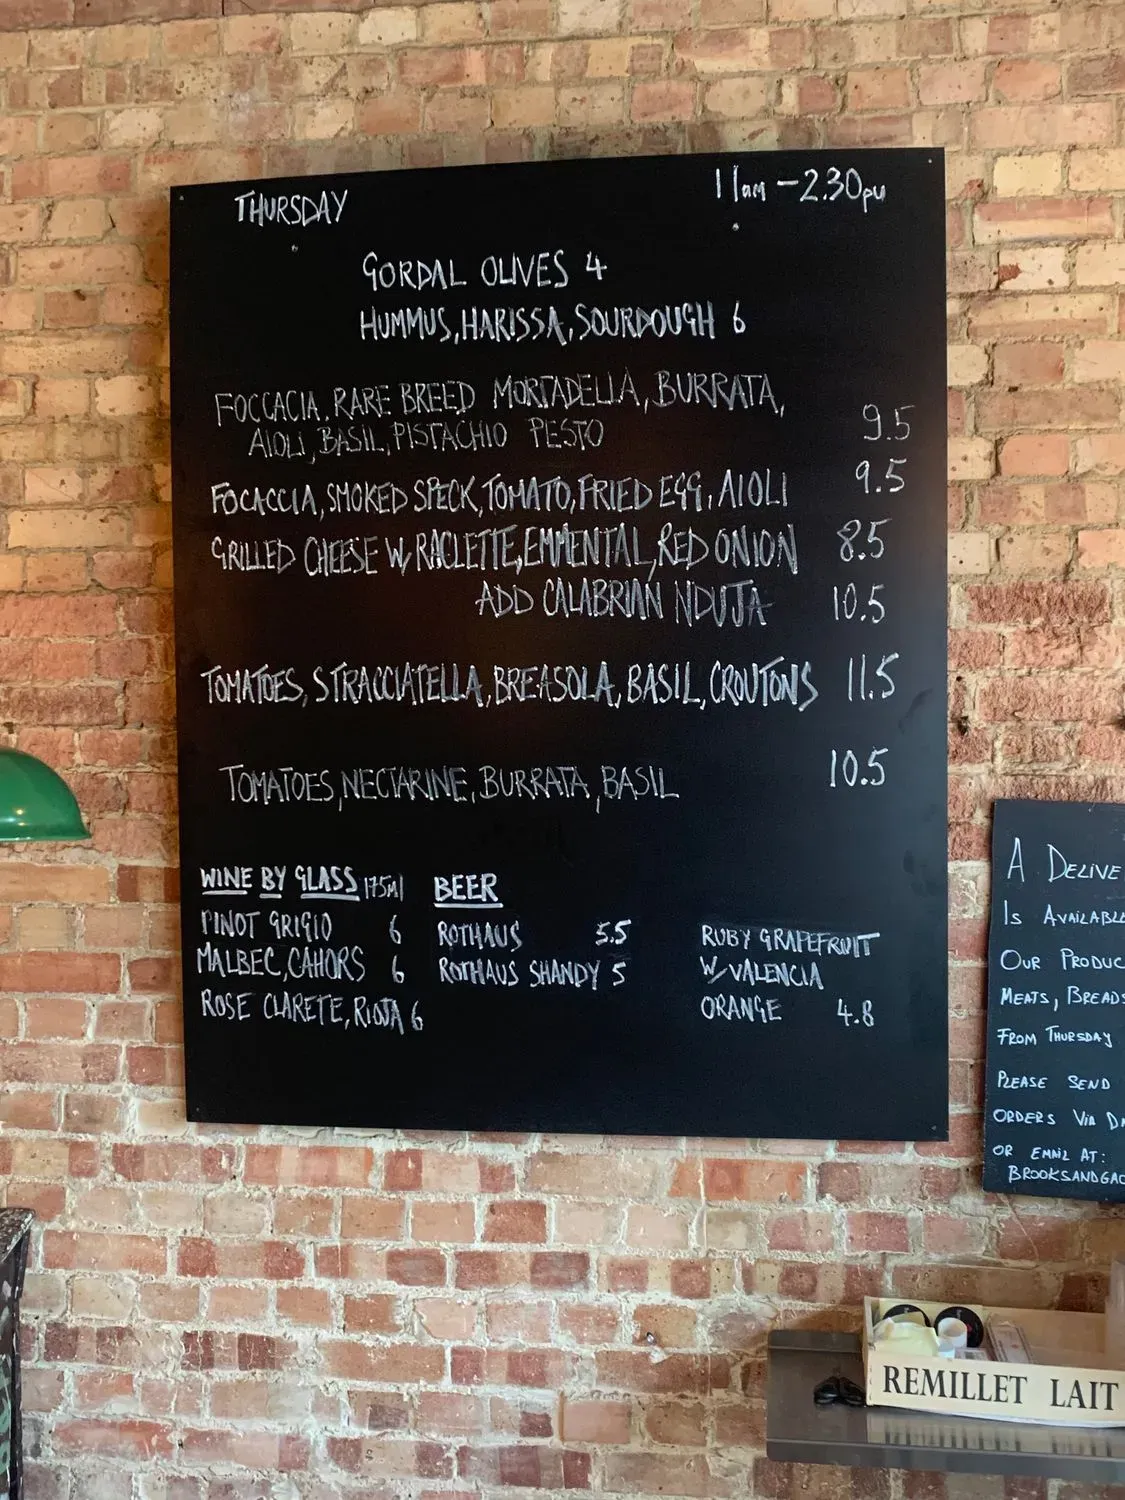 THURSDAY 11am – 2.30pm
GORDAL OLIVES 4
HUMMUS, HARISSA, SOURDOUGH 6
FOCCACIA, RARE BREED MORTADELLA, BURRATA,
AIOLI, BASIL, PISTACHIO PESTO 9.5
FOCACCIA, SMOKED SPECK, TOMATO, FRIED EGG, AIOLI 9.5
GRILLED CHEESE W/ RACLETTE, EMMENTAL, RED ONION 8.5
ADD CALABRIAN NDUJA 10.5
TOMATOES, STRACCIATELLA, BREASOLA, BASIL, CROUTONS 11.5
TOMATOES, NECTARINE, BURRATA, BASIL 10.5
WINE BY GLASS 175ml
PINOT GRIGIO 6
MALBEC, CAHORS 6
ROSE CLARETE, RIOJA 6
BEER
ROTHAUS 5.5
ROTHAUS SHANDY 5
RUBY GRAPEFRUIT
W/ VALENCIA
ORANGE 4.8
A DELIVE
IS AVAILABLE
OUR PRODUC
MEATS, BREADS
FROM THURSDAY
PLEASE SEND
ORDERS VIA
OR EMAIL AT:
BROOKSANDGAO
REMILLET LAIT